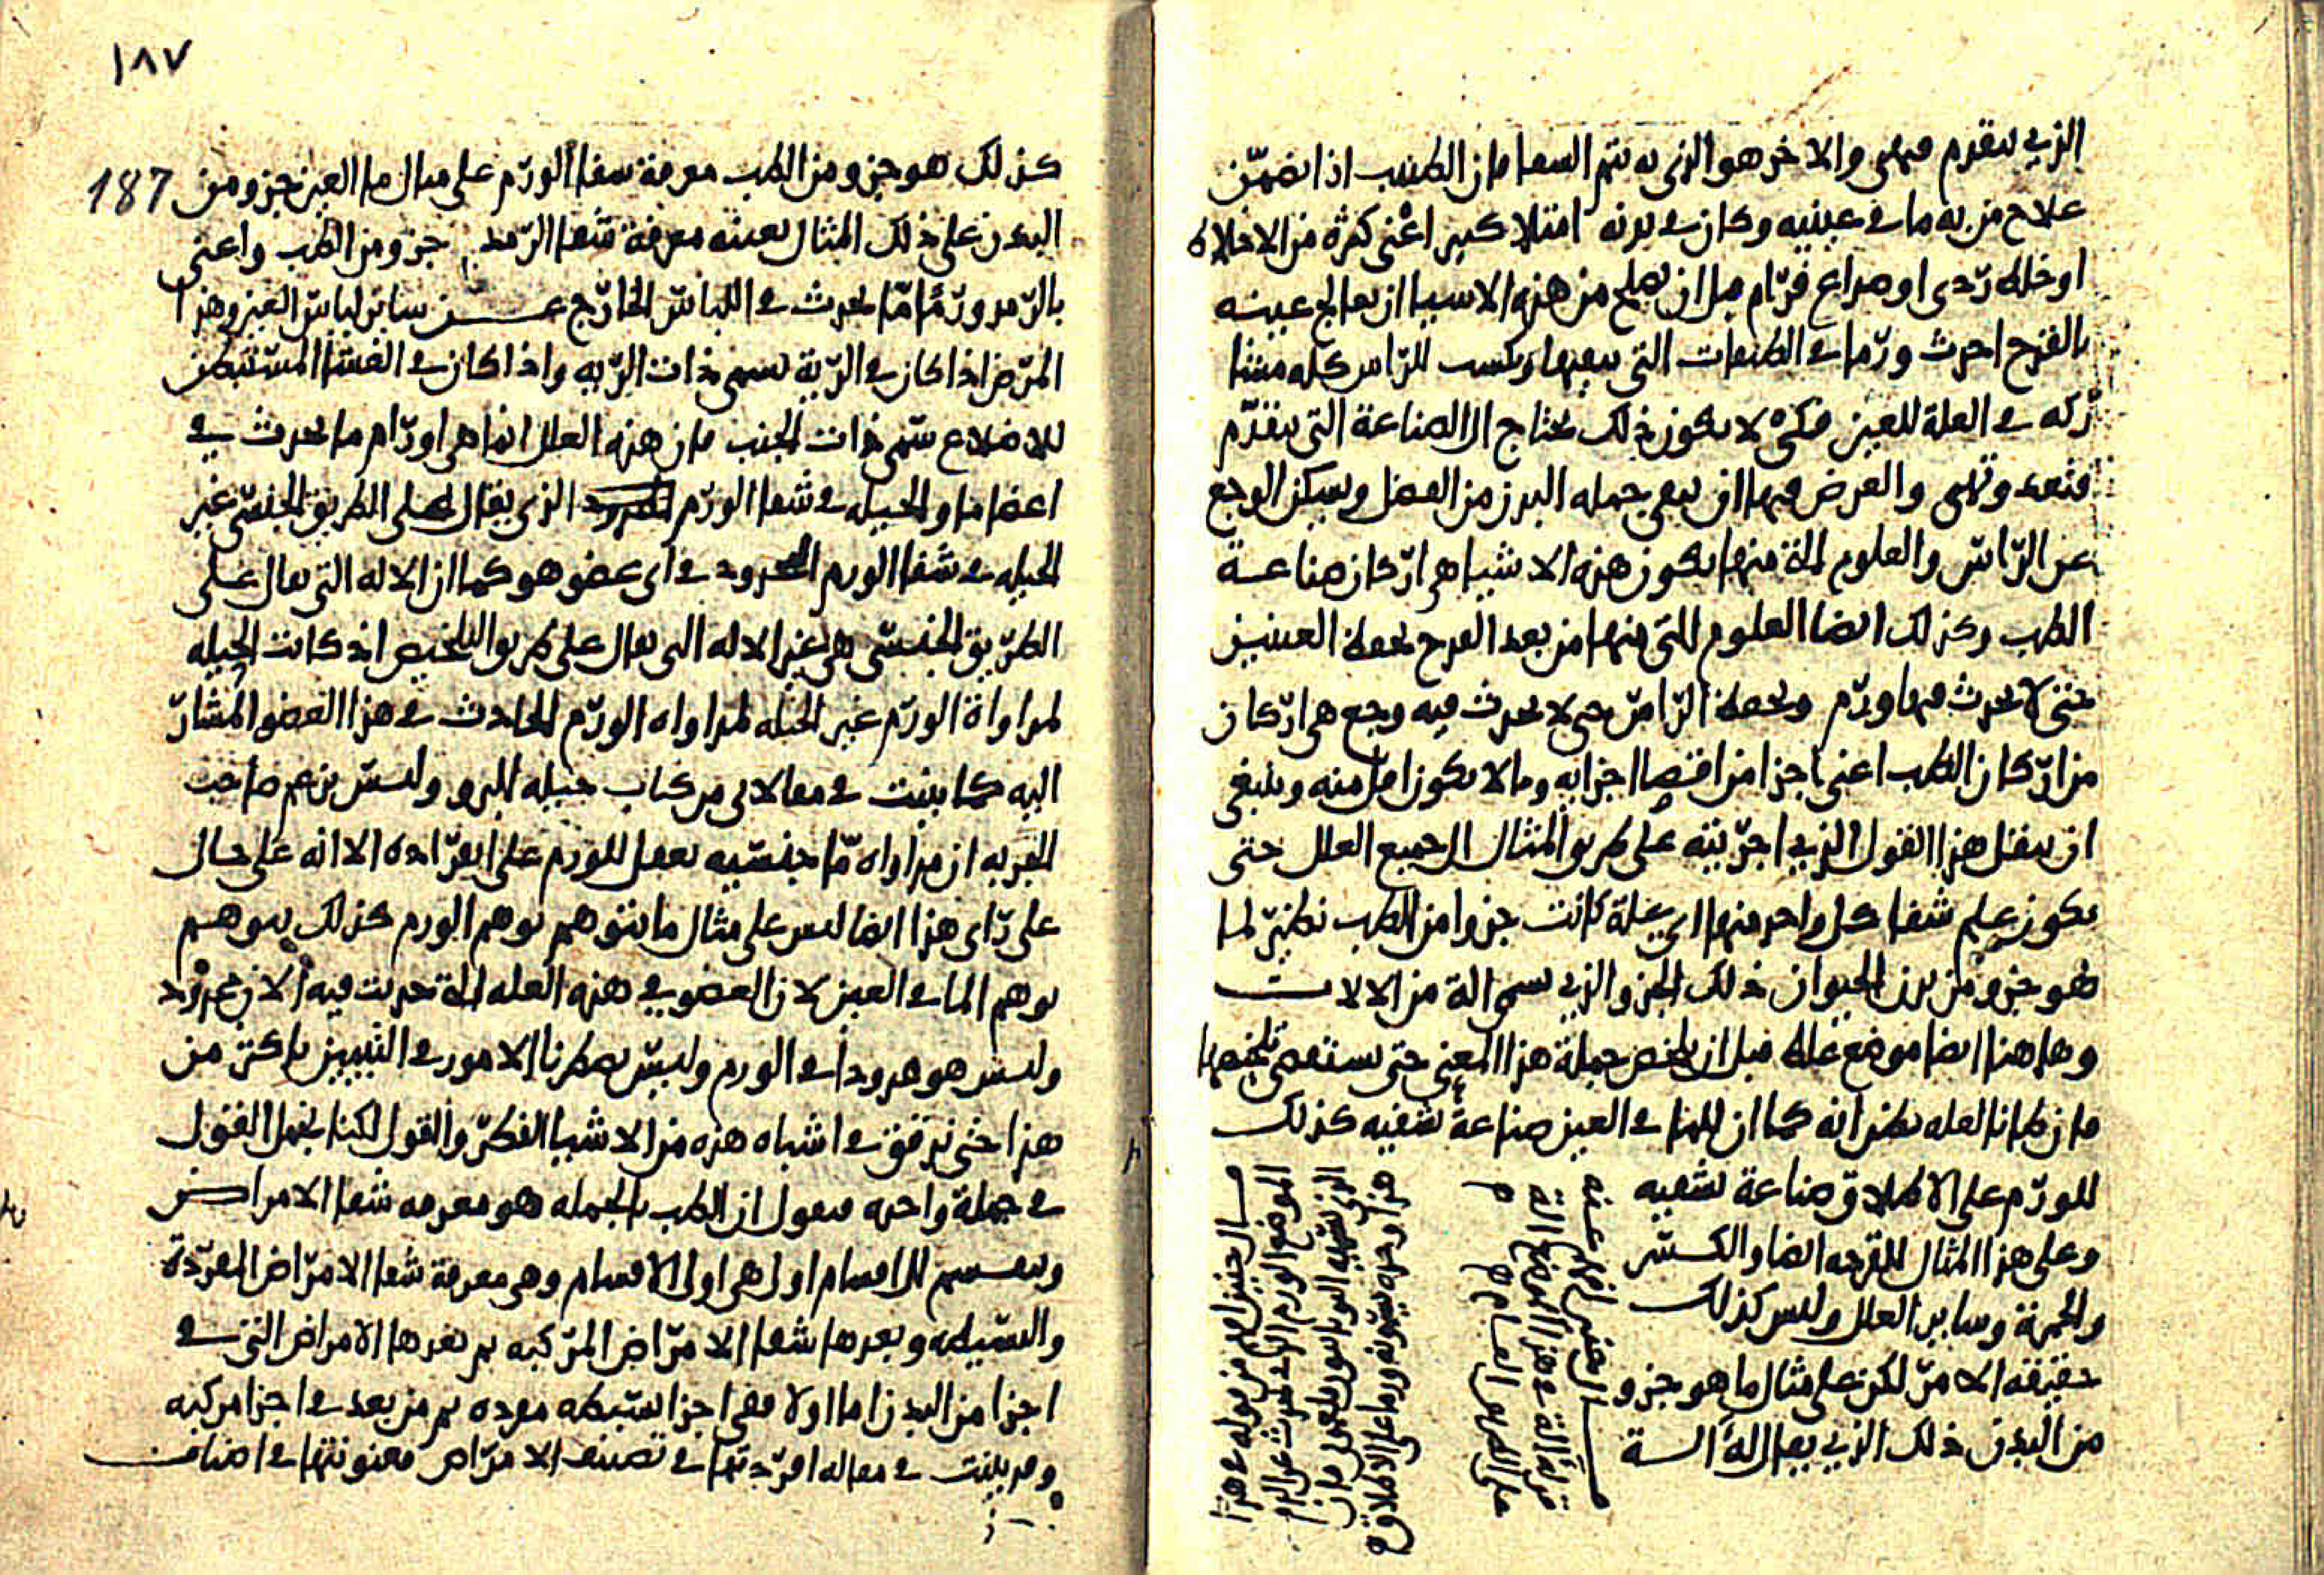 الذي يتقدم فيهي والاخر هو الذي به يتم الشفا فان الطبيب اذا تضمّن
علاج من به ما في عينيه وكان في بدنه امتلا كبير اعني كثرة من الاخلاط
او خلط ردي او صداع قدّام قبل ان يصلح من هذه الاشيا ان يعالج عينيه
بالقدح احدث ورما في الطبقات التي يثقبها ويكسب الراس كله
تركه في العلة للعين فكي لا يكون ذلك يحتاج الى الصناعة التي يتقدم
وتهيى والغرض فيها ان يبقى جملة البدن من الفضل ويسكن الوجع
عن الراس والعلوم التي منها يكون هذه الاشيا هي اركان صناعة
الطب وكذلك ايضا العلوم التي منها من بعد القدح يحفظ العينين
حتى لا يحدث فيها ورم ويحفظ الراس حتى لا يحدث فيه وجع هي اركان
من اركان الطب اعني اجزا من اقتصا اجزايه وما لا يكون اقل منه وينبغي
ان ينقل هذا القول الذي اجريته على طريق المثال الى جميع العلل حتى
يكون علم شفا كل واحد منها اي علة كانت جزوا من الطب نظير لما
هو جزو من بدن الحيوان ذلك الجزو الذي يسمى الة من الالات
وهاهنا ايضا موضع غلط قبل ان يلخص جملة هذا المعنى حتى يستقصى تلخيصها
فان ظانا لعله يظن انه كما ان للما في العين صناعة تشفيه كذلك
للورم على الاطلاق صناعة تشفيه
وعلى هذا المثال للقرحه ايضا والكسر
والحمرة وساير العلل وليس كذلك
حقيقة الامر لكن على مثال ما هو جزو
من البدن ذلك الذي يقال له الة
قال حنين افهم من قوله في هذا
الموضع الورم الذي يحدث عن الدم
هذا وحده يسمونه ورما على الاطلاق
١٨٧
كذلك هو جزو من الطب معرفة شفا الورم على مثال ما العين جزو من 187
البدن على ذلك المثال بعينه معرفة شفا الرمد جزو من الطب واعني
بالرمد ورمًا مّا يحدث في اللباس الخارج عن ساير لباس العين وهذا
المرض اذا كان في الرية يسمى ذات الريه واذا كان في الغشا المستبطن
للاضلاع سمى ذات الجنب فان هذه العلل انما هي اورام ما يحدث في
اعضا ما والحيله في شفا الورم المحدود الذي يقال على الطريق الجنسي غير
الحيله في شفا الورم المحدود في اي عضو هو كما ان الاله التي تقال على
الطريق الجنسي هي غير الاله التي تقال على طريق التلخيص اذ كانت الحيله
لمداواة الورم غير الحيله لمداواه الورم الحادث في هذا العضو المشار
اليه كما بينت في مقالاتي من كتاب حيله البرو وليس يزعم صاحب
التجربه ان مداواه مّا جنسيه تفعل للورم على انفراده الا انه على حال
على راي هذا ايضا ليس على مثال ما يتوهم توهم الورم كذلك يتوهم
توهم الما في العين لان العضو في هذه العله الذي تحدث فيه الان محدود
وليس هو محدودا في الورم وليس يضطرنا الامور في التبيين باكثر من
هذا حتى ندقق في اشباه هذه من الاشيا الفكر والقول لكنا نجمل القول
في جملة واحده فنقول ان الطب بالجمله هو معرفه شفا الامراض
وينقسم الى اقسام اول هي اولى الاقسام وهي معرفة شفا الامراض المفردة
والبسيطه وبعدها شفا الامراض المركبه ثم بعدها الامراض التي في
اجزا من البدن اما اولا ففي اجزا بسيطه مفرده ثم من بعد في اجزا مركبه
وقد بينت في مقاله افردتها في تصنيف الامراض معنونتها في اصناف